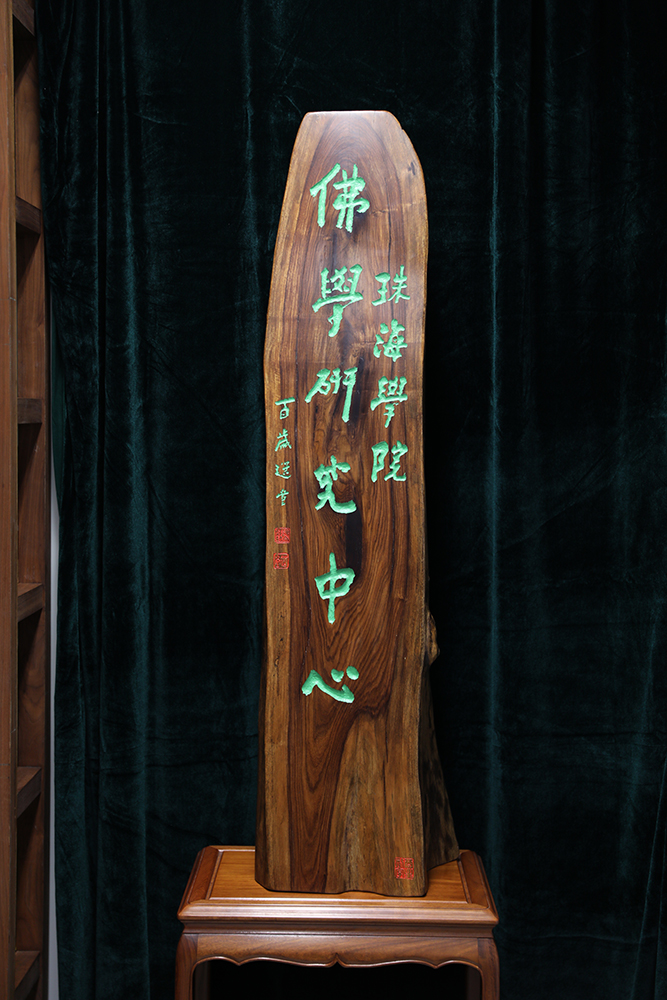 珠海學院
佛學研究中心
百歲選堂